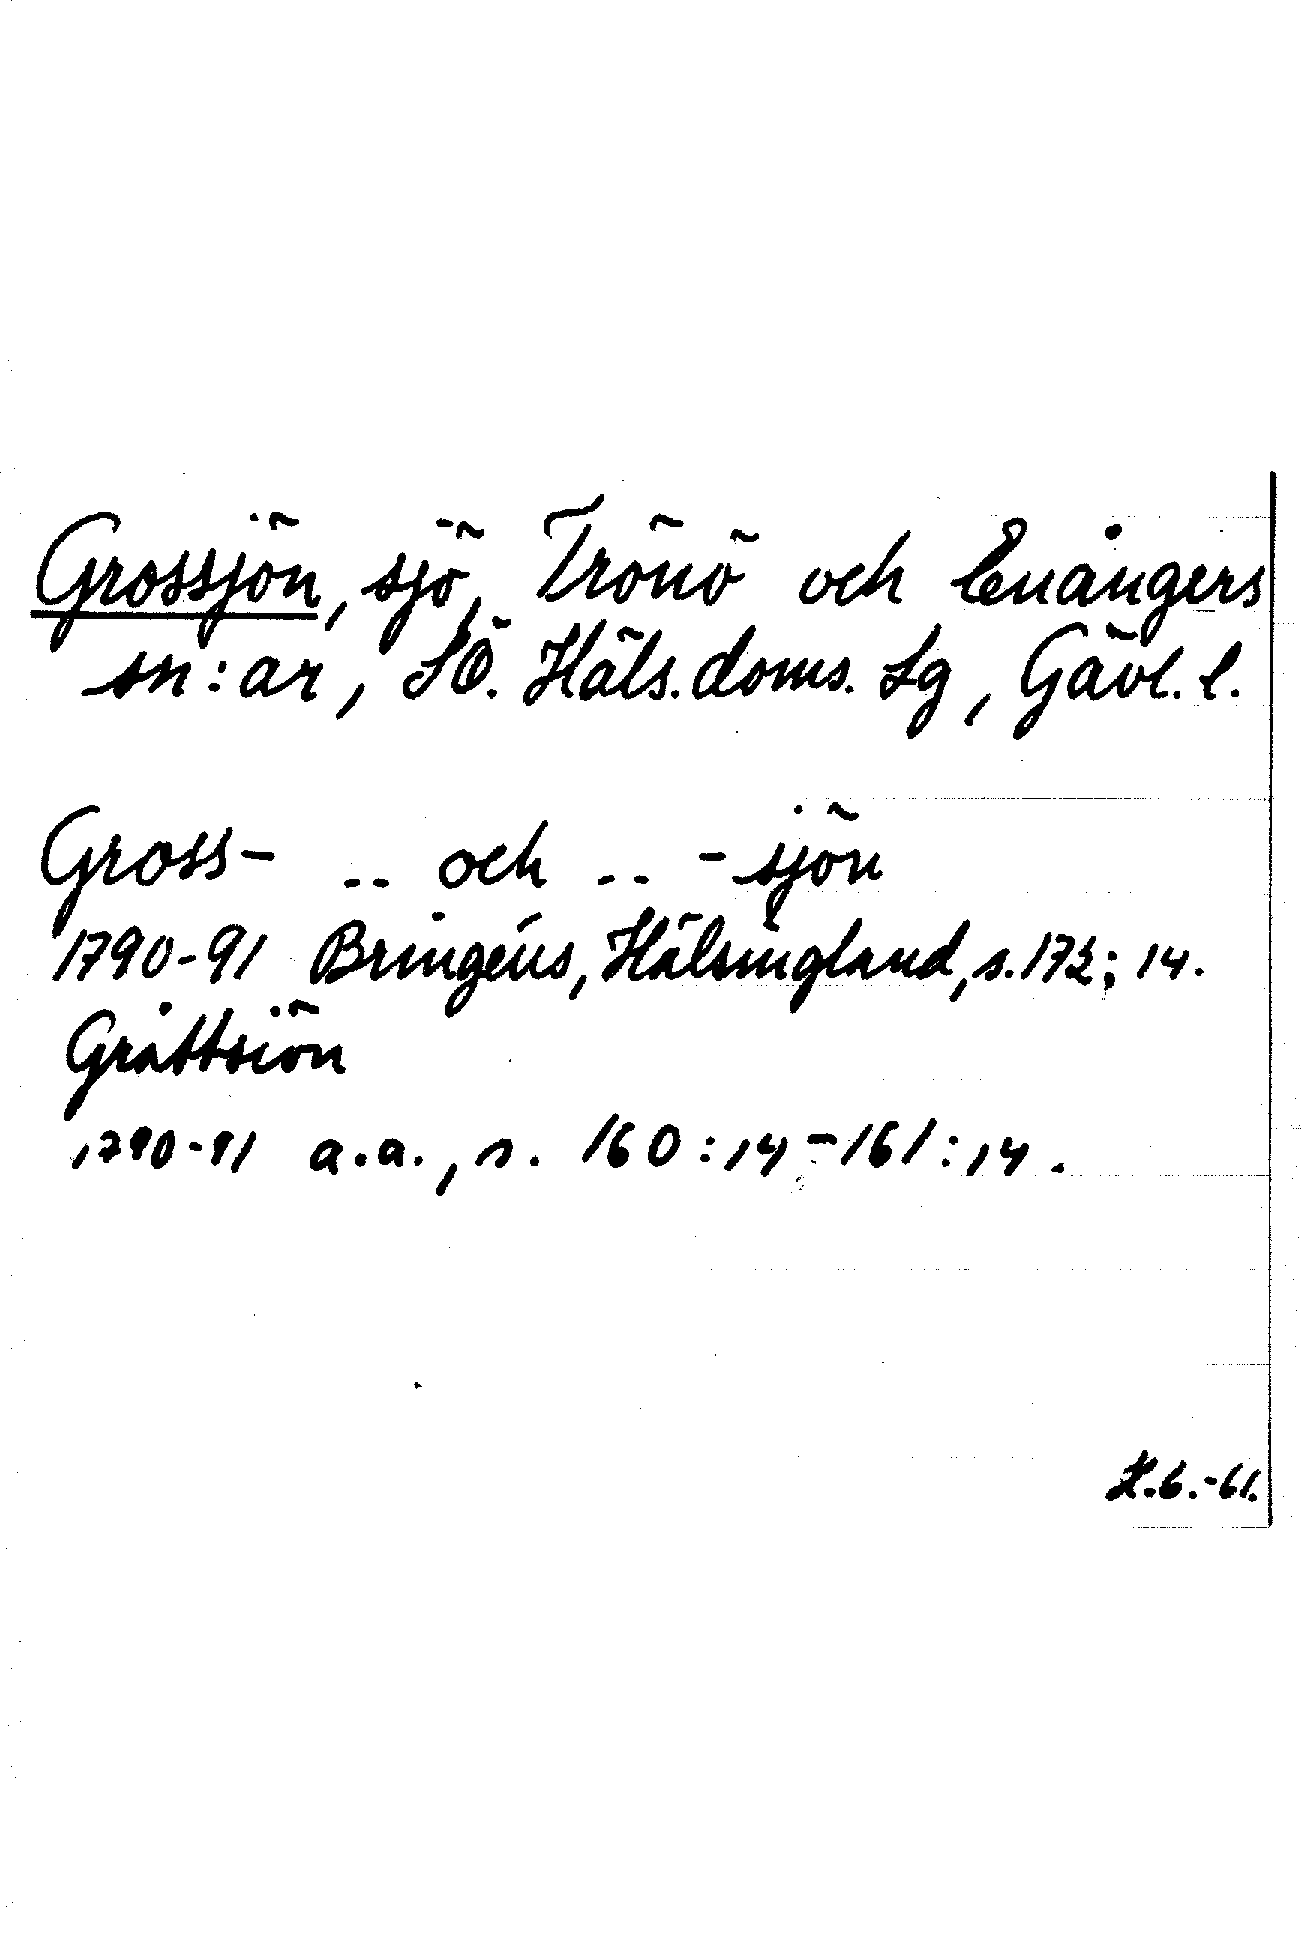 Grossjön, sjö, Trönö och Enångers
sn:ar, SÖ. Häls. doms. Lg, Gävl. l.
Gross- .. och .. -sjön
1790-91 Bringéus, Hälsingland, s. 172; 14.
Gråttsiön
1790-91 a.a., s. 160:14-161:14.
H.6.-61.